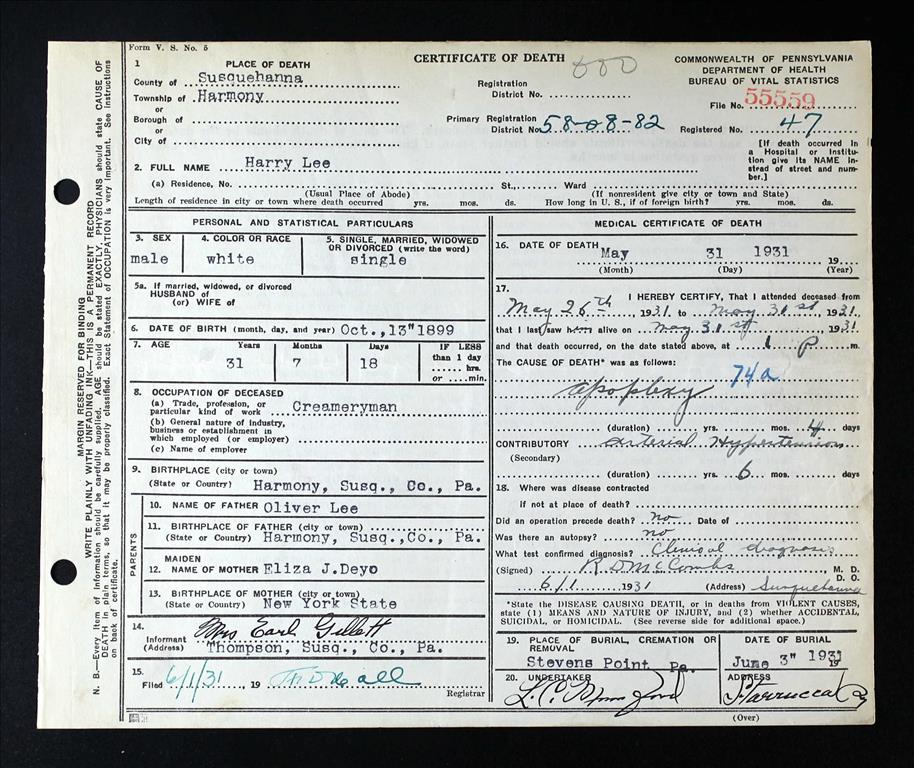 Form V. S. No. 5
CERTIFICATE OF DEATH
COMMONWEALTH OF PENNSYLVANIA
DEPARTMENT OF HEALTH
BUREAU OF VITAL STATISTICS
1 PLACE OF DEATH
County of Susquehanna
Township of Harmony
or
Borough of
or
City of
Registration
District No.
Primary Registration
District No. 58-08-82
File No. 55559
Registered No. 47
[If death occurred in
a Hospital or Institu-
tion give its NAME in-
stead of street and num-
ber.]
2. FULL NAME Harry Lee
(a) Residence, No. St., Ward
(Usual Place of Abode) (If nonresident give city or town and State)
Length of residence in city or town where death occurred yrs. mos. ds. How long in U. S., if of foreign birth? yrs. mos. ds.
PERSONAL AND STATISTICAL PARTICULARS
3. SEX
male
4. COLOR OR RACE
white
5. SINGLE, MARRIED, WIDOWED
OR DIVORCED (write the word)
single
5a. If married, widowed, or divorced
HUSBAND of
(or) WIFE of
6. DATE OF BIRTH (month, day, and year) Oct., 13" 1899
7. AGE Years Months Days IF LESS
than 1 day
31 7 18
...... hrs.
or ...... min.
8. OCCUPATION OF DECEASED
(a) Trade, profession, or
particular kind of work Creameryman
(b) General nature of industry,
business or establishment in
which employed (or employer)
(c) Name of employer
9. BIRTHPLACE (city or town)
(State or Country) Harmony, Susq., Co., Pa.
PARENTS
10. NAME OF FATHER Oliver Lee
11. BIRTHPLACE OF FATHER (city or town)
(State or Country) Harmony, Susq.,Co., Pa.
MAIDEN
12. NAME OF MOTHER Eliza J.Deyo
13. BIRTHPLACE OF MOTHER (city or town)
(State or Country) New York State
14.
Informant Mrs Earl Gillett
(Address) Thompson, Susq., Co., Pa.
15.
Filed 6/1/31, 19
Registrar
MEDICAL CERTIFICATE OF DEATH
16. DATE OF DEATH May 31 1931 19
(Month) (Day) (Year)
17. I HEREBY CERTIFY, That I attended deceased from
May 26th, 1931 to May 31st, 1931
that I last saw him alive on May 31st, 1931
and that death occurred, on the date stated above, at 1 P m.
The CAUSE OF DEATH* was as follows:
74a
apoplexy
(duration) yrs. mos. 4 days
CONTRIBUTORY arterial Hypertension
(Secondary)
(duration) yrs. 6 mos. days
18. Where was disease contracted
if not at place of death?
Did an operation precede death? no Date of
Was there an autopsy? no
What test confirmed diagnosis? Clinical diagnosis
(Signed) R D McCombs M. D.
D. O.
6/1 1931 (Address) Susquehanna
*State the DISEASE CAUSING DEATH, or in deaths from VIOLENT CAUSES,
state (1) MEANS AND NATURE OF INJURY, and (2) whether ACCIDENTAL,
SUICIDAL, or HOMICIDAL. (See reverse side for additional space.)
19. PLACE OF BURIAL, CREMATION OR
REMOVAL
Stevens Point, Pa.
DATE OF BURIAL
June 3" 1931
19
20. UNDERTAKER
L. C.
ADDRESS
Starrucca
(Over)
MARGIN RESERVED FOR BINDING
WRITE PLAINLY WITH UNFADING INK—THIS IS A PERMANENT RECORD
N. B.—Every item of Information should be carefully supplied. AGE should be stated EXACTLY. PHYSICIANS should state CAUSE OF
DEATH in plain terms, so that it may be properly classified. Exact Statement of OCCUPATION is very important. See instructions
on back of certificate.